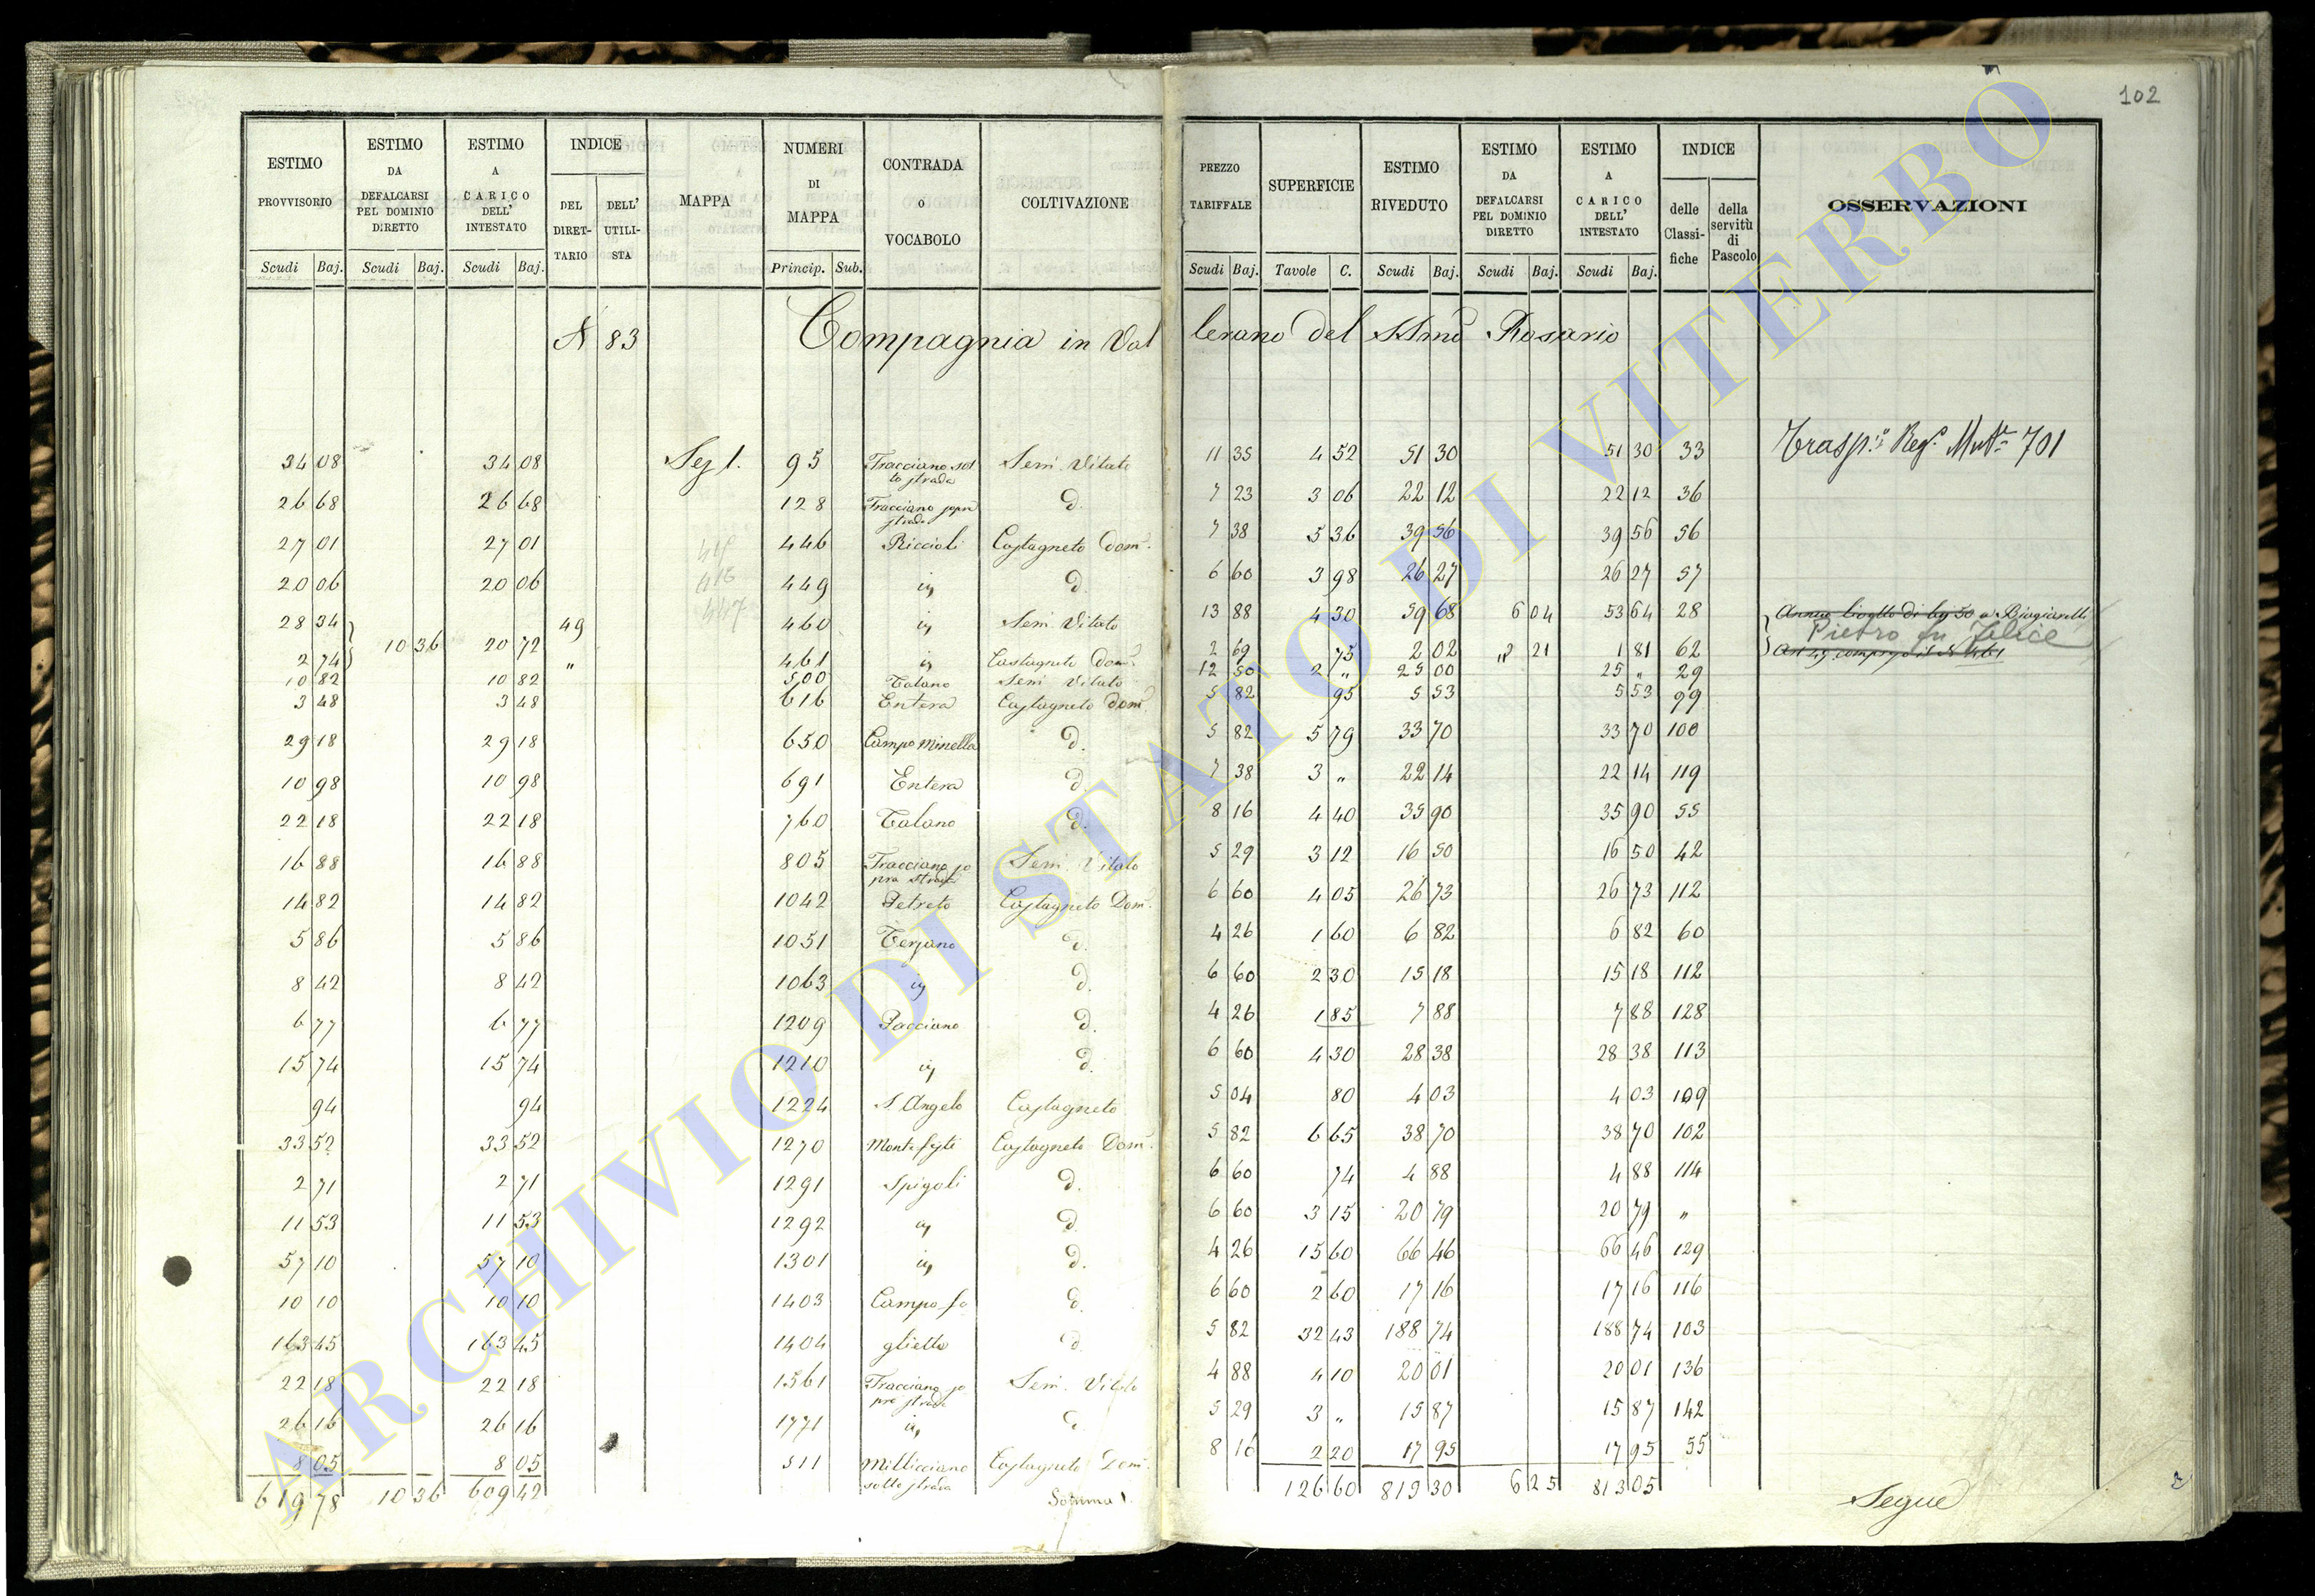 102
ESTIMO PROVVISORIO ESTIMO DA DEFALCARSI PEL DOMINIO DIRETTO ESTIMO A CARICO DELL' INTESTATO INDICE DEL DIRETTARIO DELL' UTILISTA MAPPA NUMERI DI MAPPA CONTRADA O VOCABOLO COLTIVAZIONE PREZZO TARIFFALE SUPERFICIE ESTIMO RIVEDUTO ESTIMO DA DEFALCARSI PEL DOMINIO DIRETTO ESTIMO A CARICO DELL' INTESTATO INDICE delle Classifiche della servitù di Pascolo OSSERVAZIONI
Scudi Baj. Scudi Baj. Scudi Baj. Princip. Sub. Scudi Baj. Tavole C. Scudi Baj. Scudi Baj. Scudi Baj.
N 83 Compagnia in Val lerano del SSmo Rosario
34 08 34 08 Sez 1. 95 Fracciano sot to strada Sem. Vitato 11 35 4 52 51 30 51 30 33 Trasp. Reg. Mutre 701
26 68 26 68 128 Fracciano sopra strada d. 7 23 3 06 22 12 22 12 36
27 01 27 01 446 Riccioli Castagneto Dom. 7 38 5 36 39 56 39 56 56
20 06 20 06 449 iy d. 6 60 3 98 26 27 26 27 57
447
28 34 10 36 20 72 49 460 iy Sem. Vitato 13 88 4 30 59 68 6 04 53 64 28 Annuo livello di 50 a Biagiarelli
Pietro fu Felice
2 74 " 461 iy Castagneto Dom. 2 69 75 2 02 " 21 1 81 62 compreso il N 461
10 82 10 82 500 Talano Sem. Vitato 12 50 2 " 25 00 25 " 29
3 48 3 48 616 Entera Castagneto Dom. 5 82 95 5 53 5 53 99
29 18 29 18 650 Campo Minella d. 5 82 5 79 33 70 33 70 100
10 98 10 98 691 Entera d. 7 38 3 " 22 14 22 14 119
22 18 22 18 760 Talano d. 8 16 4 40 35 90 35 90 55
16 88 16 88 805 Fracciano so pra strada Sem. Vitato 5 29 3 12 16 50 16 50 42
14 82 14 82 1042 Petreto Castagneto Dom. 6 60 4 05 26 73 26 73 112
5 86 5 86 1051 Terzano d. 4 26 1 60 6 82 6 82 60
8 42 8 42 1063 iy d. 6 60 2 30 15 18 15 18 112
6 77 6 77 1209 Pacciano d. 4 26 1 85 7 88 7 88 128
15 74 15 74 1210 iy d. 6 60 4 30 28 38 28 38 113
94 94 1224 S. Angelo Castagneto 5 04 80 4 03 4 03 109
33 52 33 52 1270 Castagneto Dom. 5 82 6 65 38 70 38 70 102
2 71 2 71 1291 Spigoli d. 6 60 74 4 88 4 88 114
11 53 11 53 1292 iy d. 6 60 3 15 20 79 20 79 "
57 10 57 10 1301 iy d. 4 26 15 60 66 46 66 46 129
10 10 10 10 1403 Campo fo d. 6 60 2 60 17 16 17 16 116
163 45 163 45 1404 glietto d. 5 82 32 43 188 74 188 74 103
22 18 22 18 1561 Fracciano so pra strada Sem. Vitato 4 88 4 10 20 01 20 01 136
26 16 26 16 1771 iy d. 5 29 3 " 15 87 15 87 142
8 05 8 05 511 Millicciano sotto strada Castagneto Dom. 8 16 2 20 17 95 17 95 55
619 78 10 36 609 42 Somma 126 60 819 30 6 25 813 05 Segue
ARCHIVIO DI STATO DI VITERBO